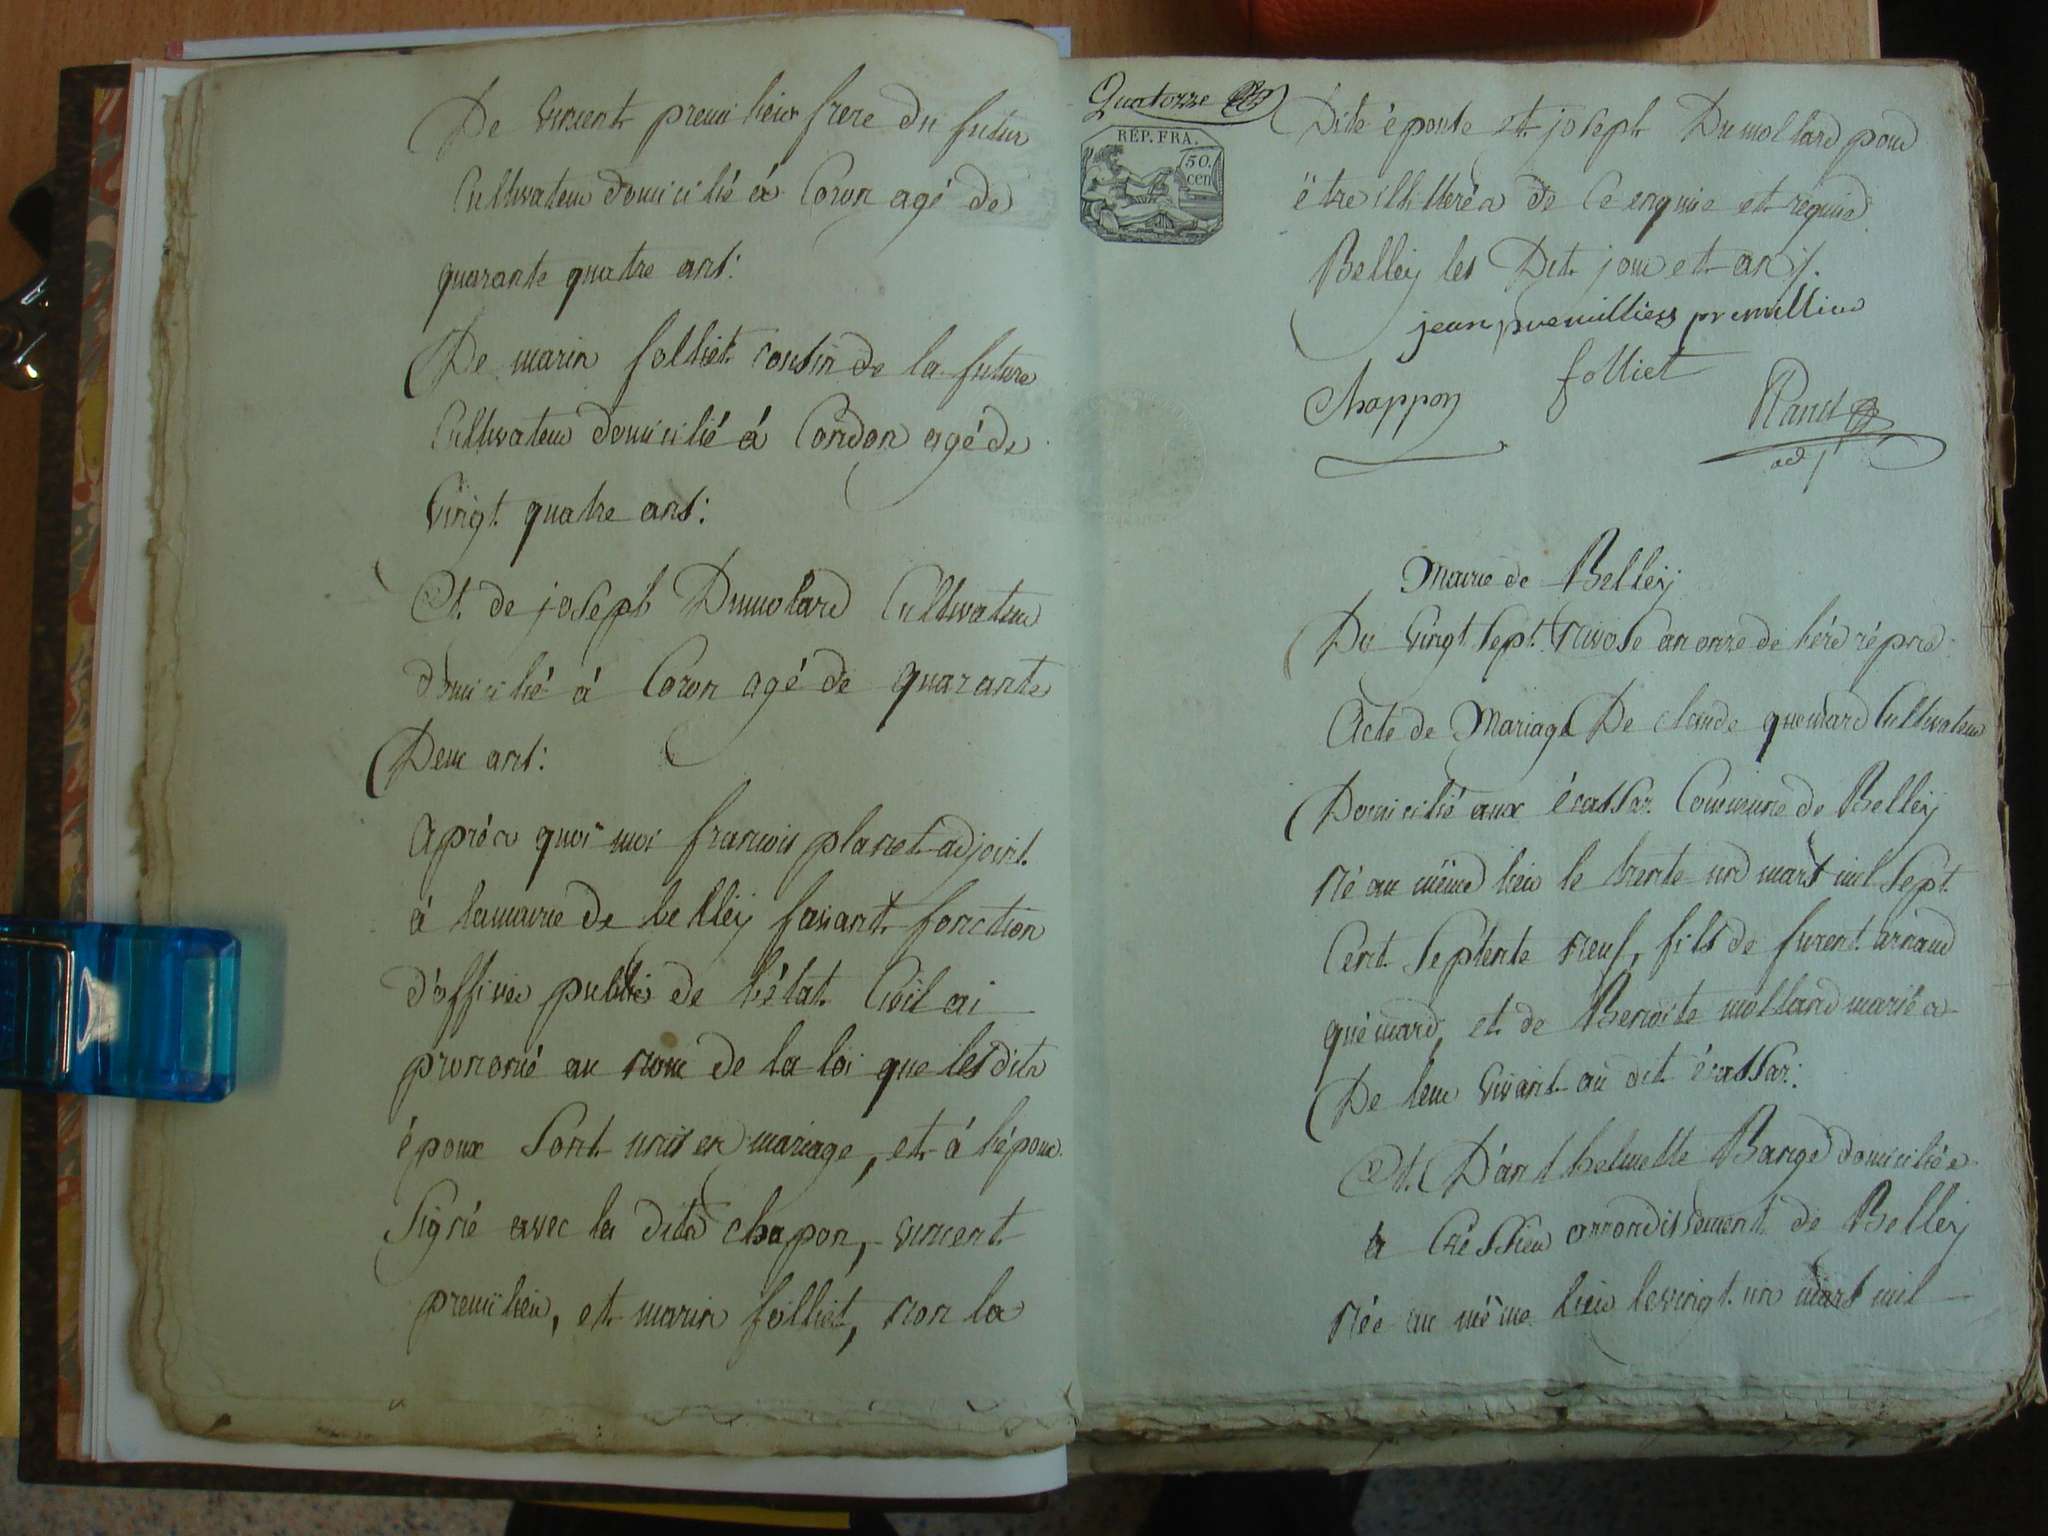 De vincent premilieux frere du futur
Cultivateur domicilié à Coron agé de
quarante quatre ans:
De marin folliet cousin de la future
Cultivateur domicilié á Condon agé de
Vingt quatre ans:
Et de joseph Dumolard Cultivateur
domicilié á Coron agé de quarante
Deux ans:
après quoi moi francois planet adjoint
á la mairie de belley faisant fonction
d'officier public de l'état Civil ai
prononcé au nom de la loi que lesdits
époux sont unis en mariage, et á l'époux
signé avec les dits chapon, vincent
premilieu, et marin folliet, non la
Quatorze
RÉP. FRA.
50.
cen
Dite épouse et joseph Dumollard pour
être illiterés de ce enquis et requis
Belley les Dit jour et an
jean premilliers premillieu
folliet
Chappon
Planet
adj
Mairie de Belley
Du Vingt sept Nivose an onze de l'ére répne
Acte de Mariage De claude quemard Cultivateur
Domicilié aux écassaz Commune de Belley
né au même lieu le trente un mars mil sept
Cent septente neuf, fils de arnaud
quémard, et de Benoite mollard mariés
De leur vivant au dit écassaz:
Et D'anthelmette Bangé domiciliée
a Créssieu arrondissement de Belley
née au même lieu le vingt un mars mil